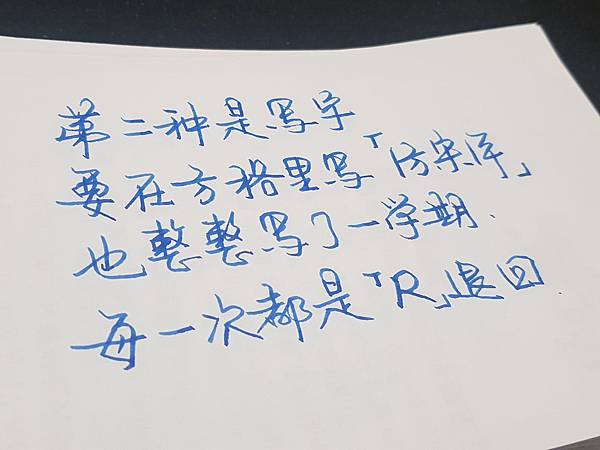 第二种是写字
要在方格里写「仿宋体」
也整整写了一学期.
每一次都是「R」退回.